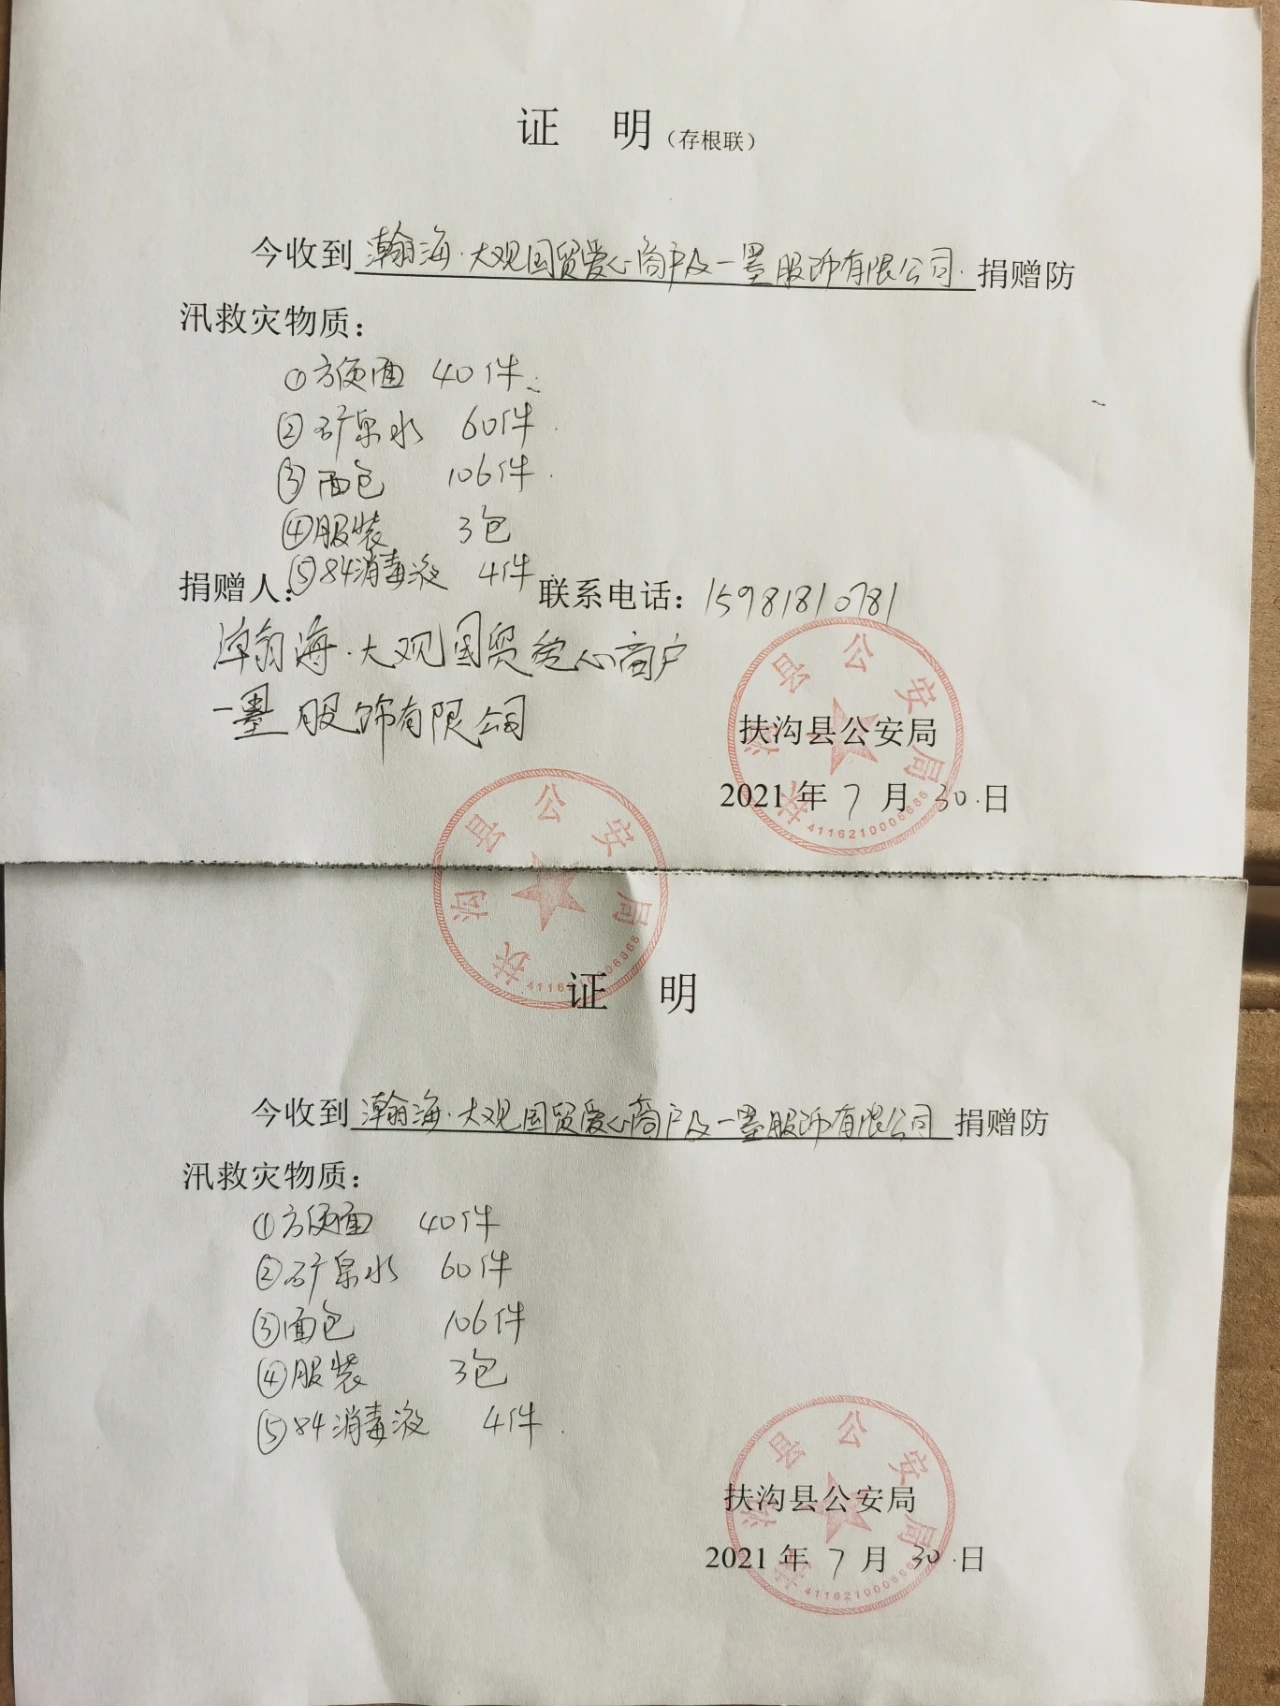 证 明（存根联）
今收到 瀚海·大观国贸爱心商户及一墨服饰有限公司. 捐赠防
汛救灾物质：
①方便面 40件.
②矿泉水 60件.
③面包 106件.
④服装 3包
⑤84消毒液 4件
捐赠人： 联系电话：15981810781
瀚海·大观国贸爱心商户
一墨服饰有限公司
扶沟县公安局
2021 年 7 月 30. 日
扶沟县公安局
扶沟县公安局
证 明
今收到 瀚海·大观国贸爱心商户及一墨服饰有限公司 捐赠防
汛救灾物质：
①方便面 40件
②矿泉水 60件
③面包 106件
④服装 3包
⑤84消毒液 4件.
扶沟县公安局
2021 年 7 月 30. 日
扶沟县公安局